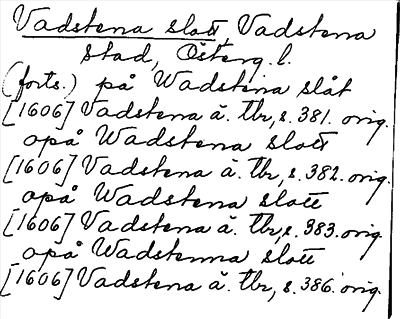 Vadstena slott, Vadstena
stad, Österg. l.
(forts.) på Wadstena slåt
[1606] Vadstena ä. tbr, s. 381. orig.
opå Wadstena slott
[1606] Vadstena ä. tbr, s. 382. orig.
opå Wadstena slott
[1606] Vadstena ä. tbr, s. 383. orig.
opå Wadstenna slott
[1606] Vadstena ä. tbr, s. 386. orig.